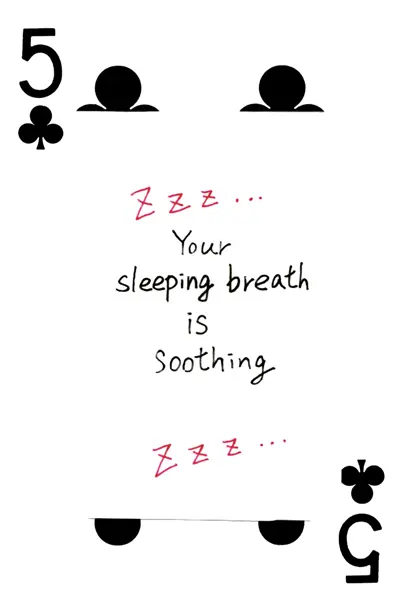 5
Z z z ...
Your
sleeping breath
is
Soothing
Z z z ...
5